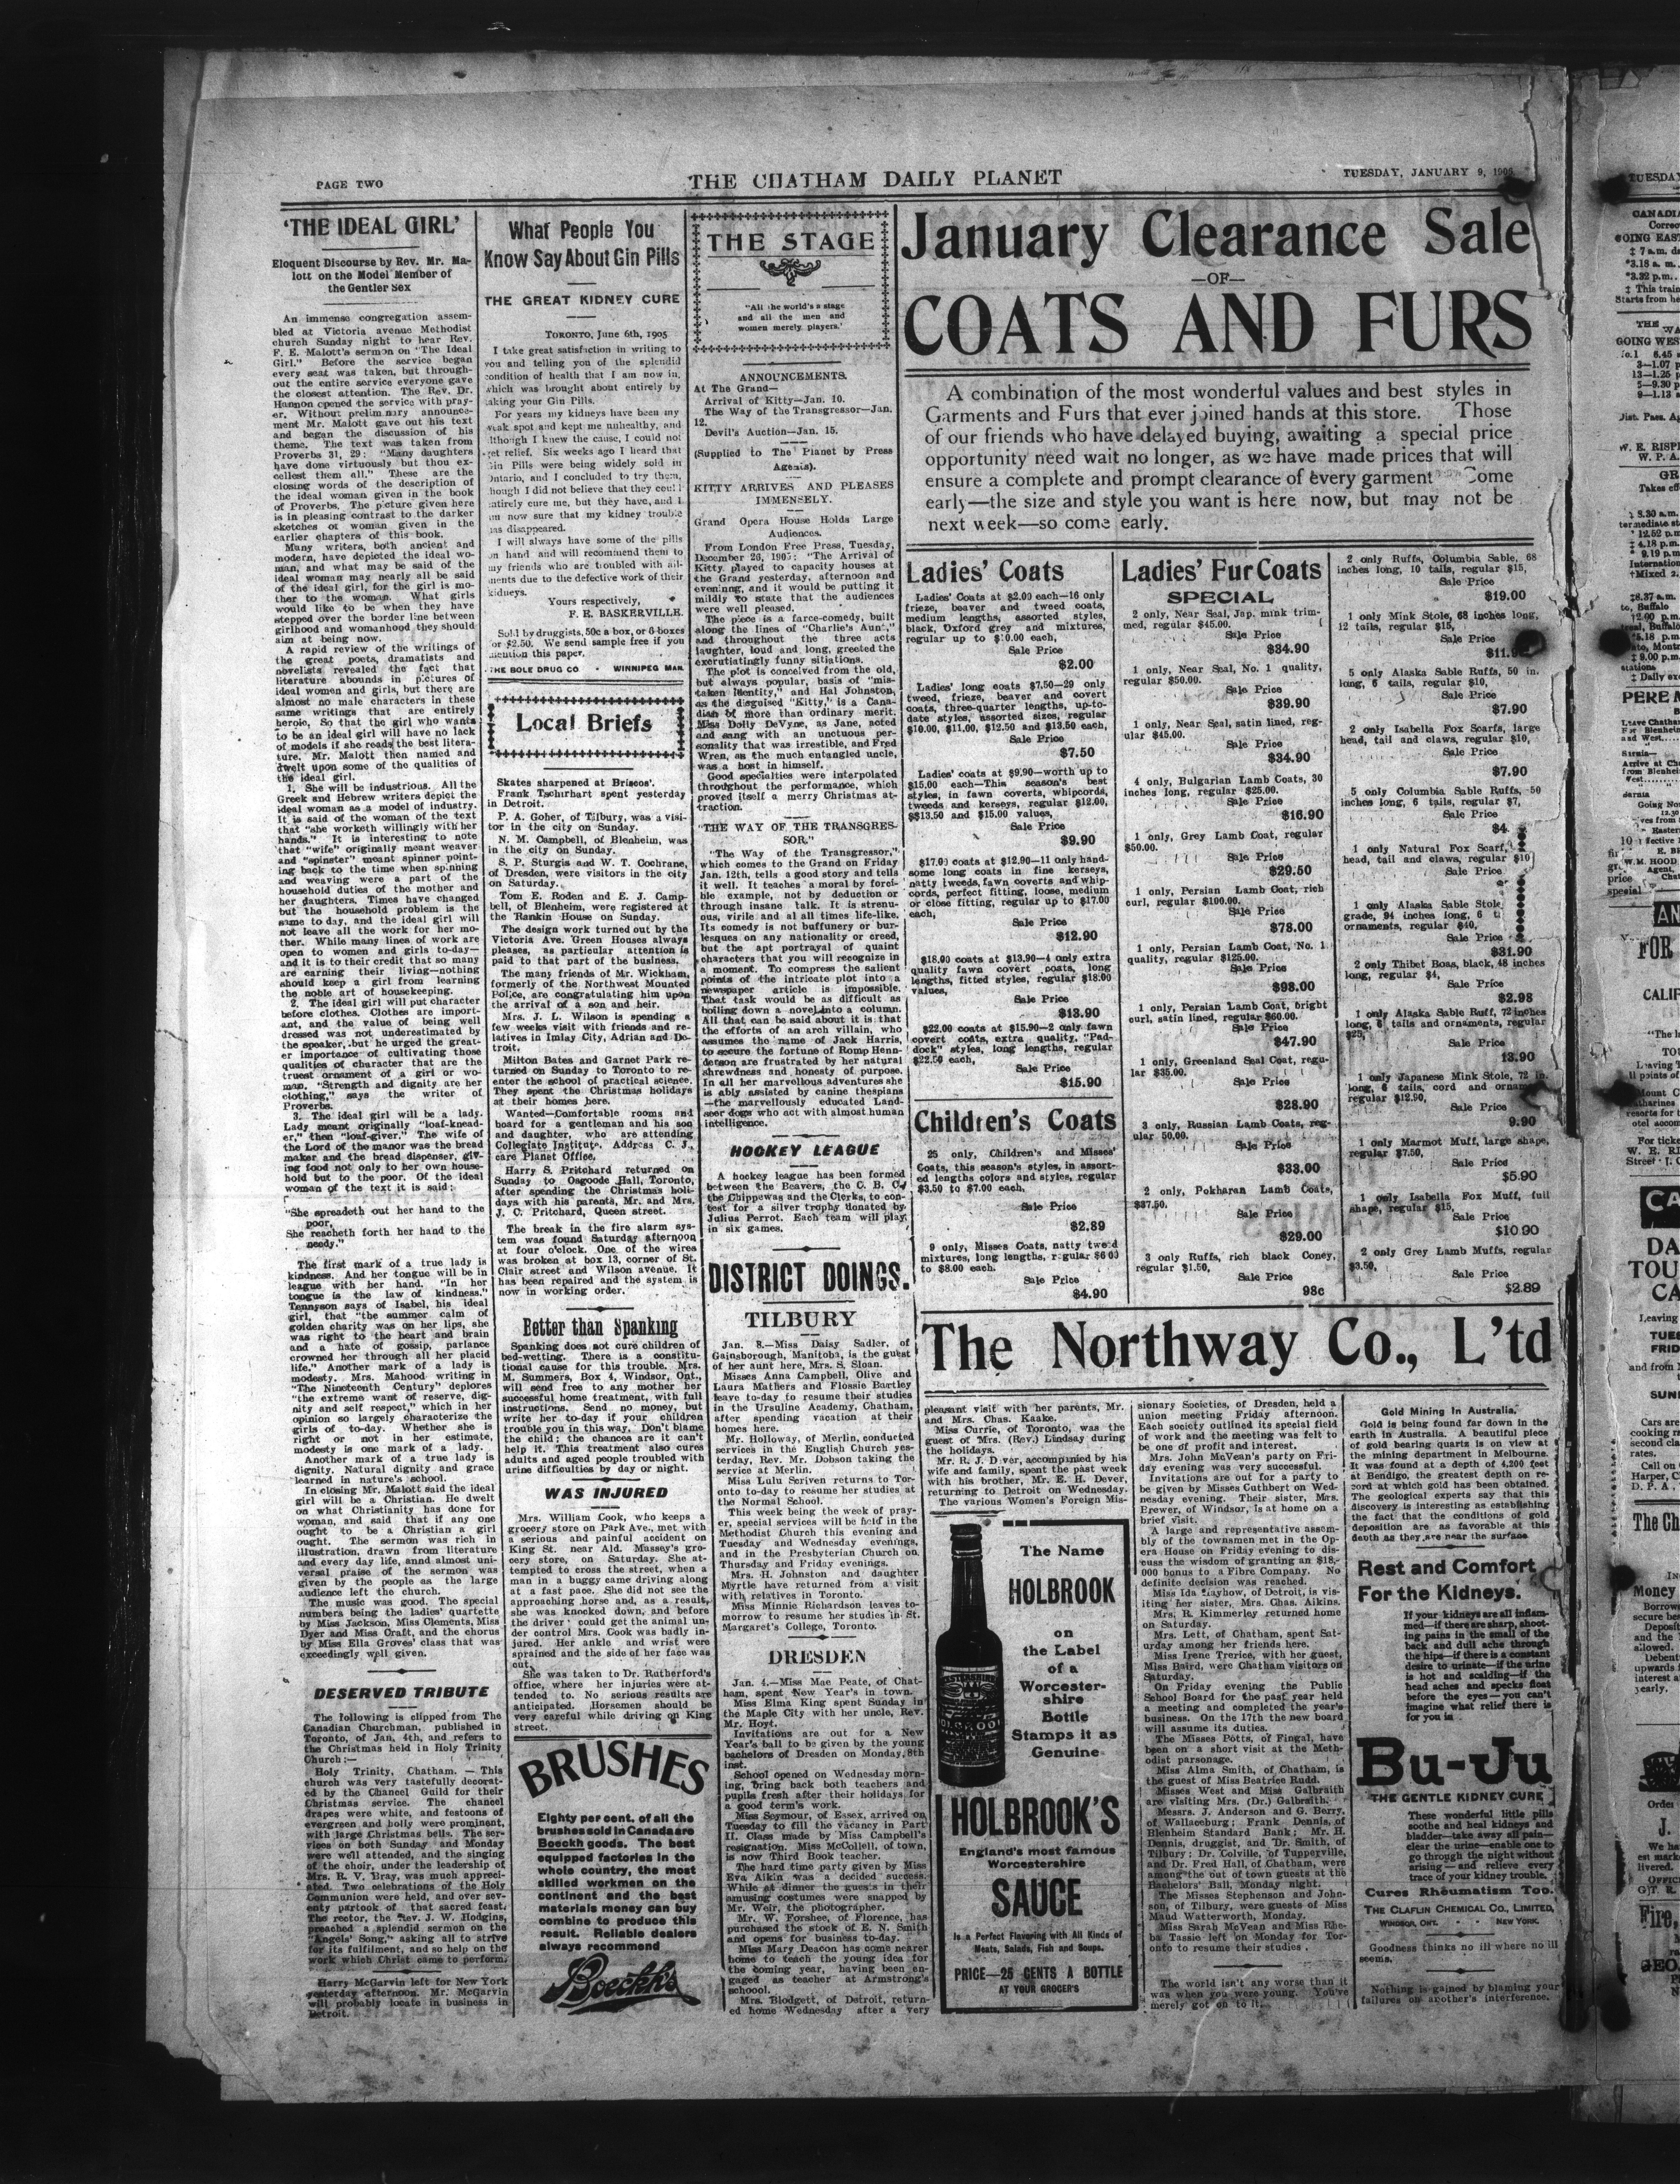 PAGE TWO
THE CHATHAM DAILY PLANET
TUESDAY, JANUARY 9,
'THE IDEAL GIRL'
Eloquent Discourse by Rev. Mr. Ma-
lott on the Model Member of
the Gentler Sex
An immense congregation assem-
bled at Victoria avenue Methodist
church Sunday night to hear Rev.
F. E. Malott's sermon on "The Ideal
Girl." Before the service began
every seat was taken, but through-
out the entire service everyone gave
the closest attention. The Rev. Dr.
Hannon opened the service with pray-
er. Without preliminary announce-
ment Mr. Malott gave out his text
and began the discussion of his
theme. The text was taken from
Proverbs 31, 29: "Many daughters
have done virtuously but thou ex-
cellest them all." These are the
closing words of the description of
the ideal woman given in the book
of Proverbs. The picture given here
is in pleasing contrast to the darker
sketches of woman given in the
earlier chapters of this book.
Many writers, both ancient and
modern, have depicted the ideal wo-
man, and what may be said of the
ideal woman may nearly all be said
of the ideal girl, for the girl is mo-
ther to the woman. What girls
would like to be when they have
stepped over the border line between
girlhood and womanhood they should
aim at being now.
A rapid review of the writings of
the great poets, dramatists and
novelists revealed the fact that
literature abounds in pictures of
ideal women and girls, but there are
almost no male characters in these
same writings that are entirely
heroic. So that the girl who wants
to be an ideal girl will have no lack
of models if she reads the best litera-
ture. Mr. Malott then named and
dwelt upon some of the qualities of
the ideal girl.
1. She will be industrious. All the
Greek and Hebrew writers depict the
ideal woman as a model of industry.
It is said of the woman of the text
that "she worketh willingly with her
hands." It is interesting to note
that "wife" originally meant weaver
and "spinster" meant spinner point-
ing back to the time when spinning
and weaving were a part of the
household duties of the mother and
her daughters. Times have changed
but the household problem is the
same to day, and the ideal girl will
not leave all the work for her mo-
ther. While many lines of work are
open to women and girls to-day—
and it is to their credit that so many
are earning their living—nothing
should keep a girl from learning
the noble art of housekeeping.
2. The ideal girl will put character
before clothes. Clothes are import-
ant, and the value of being well
dressed was not underestimated by
the speaker, but he urged the great-
er importance of cultivating those
qualities of character that are the
truest ornament of a girl or wo-
man. "Strength and dignity are her
clothing," says the writer of
Proverbs.
3. The ideal girl will be a lady.
Lady meant originally "loaf-knead-
er," then "loaf-giver." The wife of
the Lord of the manor was the bread
maker and the bread dispenser, giv-
ing food not only to her own house-
hold but to the poor. Of the ideal
woman of the text it is said:
"She spreadeth out her hand to the
poor,
She reacheth forth her hand to the
needy."
The first mark of a true lady is
kindness. And her tongue will be in
league with her hand. "In her
tongue is the law of kindness."
Tennyson says of Isabel, his ideal
girl, that "the summer calm of
golden charity was on her lips, she
was right to the heart and brain
and a hate of gossip, parlance
crowned her through all her placid
life." Another mark of a lady is
modesty. Mrs. Mahood writing in
"The Nineteenth Century" deplores
"the extreme want of reserve, dig-
nity and self respect," which in her
opinion so largely characterize the
girls of to-day. Whether she is
right or not in her estimate,
modesty is one mark of a lady.
Another mark of a true lady is
dignity. Natural dignity and grace
learned in nature's school.
In closing Mr. Malott said the ideal
girl will be a Christian. He dwelt
on what Christianity has done for
woman, and said that if any one
ought to be a Christian a girl
ought. The sermon was rich in
illustration, drawn from literature
and every day life, annd almost uni-
versal praise of the sermon was
given by the people as the large
audience left the church.
The music was good. The special
numbers being the ladies' quartette
by Miss Jackson, Miss Clements, Miss
Dyer and Miss Craft, and the chorus
by Miss Ella Groves' class that was
exceedingly well given.
DESERVED TRIBUTE
The following is clipped from The
Canadian Churchman, published in
Toronto, of Jan. 4th, and refers to
the Christmas held in Holy Trinity
Church:—
Holy Trinity, Chatham. — This
church was very tastefully decorat-
ed by the Chancel Guild for their
Christmas service. The chancel
drapes were white, and festoons of
evergreen and holly were prominent,
with large Christmas bells. The ser-
vices on both Sunday and Monday
were well attended, and the singing
of the choir, under the leadership of
Mrs. R. V. Bray, was much appreci-
ated. Two celebrations of the Holy
Communion were held, and over sev-
enty partook of that sacred feast.
The rector, the Rev. J. W. Hodgins,
preached a splendid sermon on the
"Angels' Song," asking all to strive
for its fulfilment, and so help on the
work which Christ came to perform.
Harry McGarvin left for New York
yesterday afternoon. Mr. McGarvin
will probably locate in business in
Detroit.
What People You
Know Say About Gin Pills
THE GREAT KIDNEY CURE
TORONTO, June 6th, 1905
I take great satisfaction in writing to
you and telling you of the splendid
condition of health that I am now in,
which was brought about entirely by
taking your Gin Pills.
For years my kidneys have been my
weak spot and kept me unhealthy, and
although I knew the cause, I could not
get relief. Six weeks ago I heard that
Gin Pills were being widely sold in
Ontario, and I concluded to try them,
though I did not believe that they could
entirely cure me, but they have, and I
am now sure that my kidney trouble
has disappeared.
I will always have some of the pills
on hand and will recommend them to
my friends who are troubled with ail-
ments due to the defective work of their
kidneys.
Yours respectively,
F. E. BASKERVILLE.
Sold by druggists, 50c a box, or 6 boxes
for $2.50. We send sample free if you
mention this paper.
THE BOLE DRUG CO. - WINNIPEG MAN.
Local Briefs
Skates sharpened at Briscos'.
Frank Tschirhart spent yesterday
in Detroit.
P. A. Goher, of Tilbury, was a visi-
tor in the city on Sunday.
N. M. Campbell, of Blenheim, was
in the city on Sunday.
S. P. Sturgis and W. T. Cochrane,
of Dresden, were visitors in the city
on Saturday.
Tom E. Roden and E. J. Camp-
bell, of Blenheim, were registered at
the Rankin House on Sunday.
The design work turned out by the
Victoria Ave. Green Houses always
pleases, as particular attention is
paid to that part of the business.
The many friends of Mr. Wickham,
formerly of the Northwest Mounted
Police, are congratulating him upon
the arrival of a son and heir.
Mrs. J. L. Wilson is spending a
few weeks visit with friends and re-
latives in Imlay City, Adrian and De-
troit.
Milton Bates and Garnet Park re-
turned on Sunday to Toronto to re-
enter the school of practical science.
They spent the Christmas holidays
at their homes here.
Wanted—Comfortable rooms and
board for a gentleman and his son
and daughter, who are attending
Collegiate Institute. Address C. J.,
care Planet Office.
Harry S. Pritchard returned on
Sunday to Osgoode Hall, Toronto,
after spending the Christmas holi-
days with his parents, Mr. and Mrs.
J. C. Pritchard, Queen street.
The break in the fire alarm sys-
tem was found Saturday afternoon
at four o'clock. One of the wires
was broken at box 13, corner of St.
Clair street and Wilson avenue. It
has been repaired and the system is
now in working order.
Better than Spanking
Spanking does not cure children of
bed-wetting. There is a constitu-
tional cause for this trouble. Mrs.
M. Summers, Box 4, Windsor, Ont.,
will send free to any mother her
successful home treatment, with full
instructions. Send no money, but
write her to-day if your children
trouble you in this way. Don't blame
the child; the chances are it can't
help it. This treatment also cures
adults and aged people troubled with
urine difficulties by day or night.
WAS INJURED
Mrs. William Cook, who keeps a
grocery store on Park Ave., met with
a serious and painful accident on
King St. near Ald. Massey's gro-
cery store, on Saturday. She at-
tempted to cross the street, when a
man in a buggy came driving along
at a fast pace. She did not see the
approaching horse and, as a result,
she was knocked down, and before
the driver could get the animal un-
der control Mrs. Cook was badly in-
jured. Her ankle and wrist were
sprained and the side of her face was
cut.
She was taken to Dr. Rutherford's
office, where her injuries were at-
tended to. No serious results are
anticipated. Horsemen should be
very careful while driving on King
street.
BRUSHES
Eighty per cent. of all the
brushes sold in Canada are
Boeckh goods. The best
equipped factories in the
whole country, the most
skilled workmen on the
continent and the best
materials money can buy
combine to produce this
result. Reliable dealers
always recommend
Boeckh's
THE STAGE
"All the world's a stage
and all the men and
women merely players."
ANNOUNCEMENTS.
At The Grand—
Arrival of Kitty—Jan. 10.
The Way of the Transgressor—Jan.
12.
Devil's Auction—Jan. 15.
(Supplied to The Planet by Press
Agents).
KITTY ARRIVES AND PLEASES
IMMENSELY.
Grand Opera House Holds Large
Audiences.
From London Free Press, Tuesday,
December 26, 1905: "The Arrival of
Kitty played to capacity houses at
the Grand yesterday, afternoon and
eveninng, and it would be putting it
mildly to state that the audiences
were well pleased.
The piece is a farce-comedy, built
along the lines of "Charlie's Aunt,"
and throughout the three acts
laughter, loud and long, greeted the
excrutiatingly funny sitiations.
The plot is conceived from the old,
but always popular, basis of "mis-
taken identity," and Hal Johnston,
as the disguised "Kitty," is a Cana-
dian of more than ordinary merit.
Miss Dolly DeVyne, as Jane, acted
and sang with an unctuous per-
sonality that was irrestible, and Fred
Wren, as the much entangled uncle,
was a host in himself.
Good specialties were interpolated
throughout the performance, which
proved itself a merry Christmas at-
traction.
"THE WAY OF THE TRANSGRES-
SOR."
"The Way of the Transgressor,"
which comes to the Grand on Friday
Jan. 12th, tells a good story and tells
it well. It teaches a moral by forci-
ble example, not by deduction or
through insane talk. It is strenu-
ous, virile and al all times life-like.
Its comedy is not buffunery or bur-
lesques on any nationality or creed,
but the apt portrayal of quaint
characters that you will recognize in
a moment. To compress the salient
points of the intricate plot into a
newspaper article is impossible.
That task would be as difficult as
boiling down a novel into a column.
All that can be said about it is that
the efforts of an arch villain, who
assumes the name of Jack Harris,
to secure the fortune of Romp Henn-
derson are frustrated by her natural
shrewdness and honesty of purpose.
In all her marvellous adventures she
is ably assisted by canine thespians
—the marvellously educated Land-
seer dogs who act with almost human
intelligence.
HOCKEY LEAGUE
A hockey league has been formed
between the Beavers, the C. B. C.,
the Chippewas and the Clerks, to con-
test for a silver trophy donated by
Julius Perrot. Each team will play
in six games.
DISTRICT DOINGS.
TILBURY
Jan. 8.—Miss Daisy Sadler, of
Gainsborough, Manitoba, is the guest
of her aunt here, Mrs. S. Sloan.
Misses Anna Campbell, Olive and
Laura Mathers and Flossie Bartley
leave to-day to resume their studies
in the Ursuline Academy, Chatham,
after spending vacation at their
homes here.
Mr. Holloway, of Merlin, conducted
services in the English Church yes-
terday, Rev. Mr. Dobson taking the
service at Merlin.
Miss Lulu Scriven returns to Tor-
onto to-day to resume her studies at
the Normal School.
This week being the week of pray-
er, special services will be held in the
Methodist Church this evening and
Tuesday and Wednesday evenings,
and in the Presbyterian Church on
Thursday and Friday evenings.
Mrs. H. Johnston and daughter
Myrtle have returned from a visit
with relatives in Toronto.
Miss Minnie Richardson leaves to-
morrow to resume her studies in St.
Margaret's College, Toronto.
DRESDEN
Jan. 4.—Miss Mae Peate, of Chat-
ham, spent New Year's in town.
Miss Elma King spent Sunday in
the Maple City with her uncle, Rev.
Mr. Hoyt.
Invitations are out for a New
Year's ball to be given by the young
bachelors of Dresden on Monday, 8th
inst.
School opened on Wednesday morn-
ing, bring back both teachers and
pupils fresh after their holidays for
a good term's work.
Miss Seymour, of Essex, arrived on
Tuesday to fill the vacancy in Part
II. Class made by Miss Campbell's
resignation. Miss McCollell, of town,
is now Third Book teacher.
The hard time party given by Miss
Eva Aikin was a decided success.
While at dinner the guests in their
amusing costumes were snapped by
Mr. Weir, the photographer.
Mr. W. Forshee, of Florence, has
purchased the stock of E. N. Smith
and opens for business to-day.
Miss Mary Deacon has come nearer
home to teach the young idea for
the coming year, having been en-
gaged as teacher at Armstrong's
schoool.
Mrs. Blodgett, of Detroit, return-
ed home Wednesday after a very
January Clearance Sale
—OF—
COATS AND FURS
A combination of the most wonderful values and best styles in
Garments and Furs that ever joined hands at this store. Those
of our friends who have delayed buying, awaiting a special price
opportunity need wait no longer, as we have made prices that will
ensure a complete and prompt clearance of every garment Come
early—the size and style you want is here now, but may not be
next week—so come early.
Ladies' Coats
Ladies' Coats at $2.00 each—16 only
frieze, beaver and tweed coats,
medium lengths, assorted styles,
black, Oxford grey and mixtures,
regular up to $10.00 each,
Sale Price
$2.00
Ladies' long coats $7.50—29 only
tweed, frieze, beaver and covert
coats, three-quarter lengths, up-to-
date styles, assorted sizes, regular
$10.00, $11.00, $12.50 and $13.50 each,
Sale Price
$7.50
Ladies' coats at $9.90—worth up to
$15.00 each—This season's best
styles, in fawn coverts, whipcords,
tweeds and kerseys, regular $12.00,
$$13.50 and $15.00 values,
Sale Price
$9.90
$17.00 coats at $12.90—11 only hand-
some long coats in fine kerseys,
natty tweeds, fawn coverts and whip-
cords, perfect fitting, loose, medium
or close fitting, regular up to $17.00
each,
Sale Price
$12.90
$18.00 coats at $13.90—4 only extra
quality fawn covert coats, long
lengths, fitted styles, regular $18.00
values,
Sale Price
$13.90
$22.00 coats at $15.90—2 only fawn
covert coats, extra quality, "Pad-
dock" styles, long lengths, regular
$22.50 each,
Sale Price
$15.90
Children's Coats
25 only, Children's and Misses'
Coats, this season's styles, in assort-
ed lengths colors and styles, regular
$3.50 to $7.00 each,
Sale Price
$2.89
9 only, Misses Coats, natty tweed
mixtures, long lengths, regular $6.00
to $8.00 each.
Sale Price
$4.90
Ladies' Fur Coats
SPECIAL
2 only, Near Seal, Jap. mink trim-
med, regular $45.00.
Sale Price
$34.90
1 only, Near Seal, No. 1 quality,
regular $50.00.
Sale Price
$39.90
1 only, Near Seal, satin lined, reg-
ular $45.00.
Sale Price
$34.90
4 only, Bulgarian Lamb Coats, 30
inches long, regular $25.00.
Sale Price
$16.90
1 only, Grey Lamb Coat, regular
$50.00.
Sale Price
$29.50
1 only, Persian Lamb Coat, rich
curl, regular $100.00.
Sale Price
$78.00
1 only, Persian Lamb Coat, No. 1
quality, regular $125.00.
Sale Price
$98.00
1 only, Persian Lamb Coat, bright
curl, satin lined, regular $60.00.
Sale Price
$47.90
1 only, Greenland Seal Coat, regu-
lar $35.00.
Sale Price
$28.90
3 only, Russian Lamb Coats, reg-
ular 50.00,
Sale Price
$33.00
2 only, Pokharan Lamb Coats,
$37.50.
Sale Price
$29.00
3 only Ruffs, rich black Coney,
regular $1.50,
Sale Price
98c
2 only Ruffs, Columbia Sable, 68
inches long, 10 tails, regular $15,
Sale Price
$19.00
1 only Mink Stole, 68 inches long,
12 tails, regular $15,
Sale Price
5 only Alaska Sable Ruffs, 50 in.
long, 6 tails, regular $10,
Sale Price
$7.90
2 only Isabella Fox Scarfs, large
head, tail and claws, regular $10,
Sale Price
$7.90
5 only Columbia Sable Ruffs, 50
inches long, 6 tails, regular $7,
Sale Price
$4.
1 only Natural Fox Scarf,
head, tail and claws, regular $10
Sale Price
1 only Alaska Sable Stole
grade, 94 inches long, 6
ornaments, regular $40,
Sale Price
$31.90
2 only Thibet Boas, black, 48 inches
long, regular $4,
Sale Price
$2.98
1 only Alaska Sable Ruff, 72 inches
long, 6 tails and ornaments, regular
$25,
Sale Price
13.90
1 only Japanese Mink Stole, 72 in.
long, 6 tails, cord and
regular $12.90,
Sale Price
9.90
1 only Marmot Muff, large shape,
regular $7.50,
Sale Price
$5.90
1 only Isabella Fox Muff, full
shape, regular $15,
Sale Price
$10.90
2 only Grey Lamb Muffs, regular
$3.50,
Sale Price
$2.89
The Northway Co., L'td
pleasant visit with her parents, Mr.
and Mrs. Chas. Kaake.
Miss Currie, of Toronto, was the
guest of Mrs. (Rev.) Lindsay during
the holidays.
Mr. R. J. D ver, accompanied by his
wife and family, spent the past week
with his brother, Mr. E. H. Dever,
returning to Detroit on Wednesday.
The various Women's Foreign Mis-
The Name
HOLBROOK
on
the Label
of a
Worcester-
shire
Bottle
Stamps it as
Genuine
HOLBROOK'S
England's most famous
Worcestershire
SAUCE
Is a Perfect Flavoring with All Kinds of
Meats, Salads, Fish and Soups.
PRICE—25 CENTS A BOTTLE
AT YOUR GROCER'S
sionary Societies, of Dresden, held a
union meeting Friday afternoon.
Each society outlined its special field
of work and the meeting was felt to
be one of profit and interest.
Mrs. John McVean's party on Fri-
day evening was very successful.
Invitations are out for a party to
be given by Misses Cuthbert on Wed-
nesday evening. Their sister, Mrs.
Brewer, of Windsor, is at home on a
brief visit.
A large and representative assem-
bly of the townsmen met in the Op-
era House on Friday evening to dis-
cuss the wisdom of granting an $18,-
000 bonus to a Fibre Company. No
definite decision was reached.
Miss Ida Layhow, of Detroit, is vis-
iting her sister, Mrs. Chas. Aikins.
Mrs. R. Kimmerley returned home
on Saturday.
Mrs. Lett, of Chatham, spent Sat-
urday among her friends here.
Miss Irene Trerice, with her guest,
Miss Baird, were Chatham visitors on
Saturday.
On Friday evening the Public
School Board for the past year held
a meeting and completed the year's
business. On the 17th the new board
will assume its duties.
The Misses Potts, of Fingal, have
been on a short visit at the Meth-
odist parsonage.
Miss Alma Smith, of Chatham, is
the guest of Miss Beatrice Rudd.
Misses West and Miss Galbraith
are visiting Mrs. (Dr.) Galbraith.
Messrs. J. Anderson and G. Berry,
of Wallaceburg; Frank Dennis, of
Blenheim Standard Bank; Mr. H.
Dennis, druggist, and Dr. Smith, of
Tilbury; Dr. Colville, of Tupperville,
and Dr. Fred Hall, of Chatham, were
among the out of town guests at the
Bachelors' Ball, Monday night.
The Misses Stephenson and John-
son, of Tilbury, were guests of Miss
Maud Watterworth, Monday.
Miss Sarah McVean and Miss Rhe-
ba Tassie left on Monday for Tor-
onto to resume their studies.
The world isn't any worse than it
was when you were young. You've
merely got on to it.
Gold Mining In Australia.
Gold is being found far down in the
earth in Australia. A beautiful piece
of gold bearing quartz is on view at
the mining department in Melbourne.
It was found at a depth of 4,200 feet
at Bendigo, the greatest depth on re-
cord at which gold has been obtained.
The geological experts say that this
discovery is interesting as establishing
the fact that the conditions of gold
deposition are as favorable at this
depth as they are near the surface.
Rest and Comfort
For the Kidneys.
If your kidneys are all inflam-
med—if there are sharp, shoot-
ing pains in the small of the
back and dull ache through
the hips—if there is a constant
desire to urinate—if the urine
is hot and scalding—if the
head aches and specks float
before the eyes—you can't
imagine what relief there is
for you in
Bu-Ju
THE GENTLE KIDNEY CURE
These wonderful little pills
soothe and heal kidneys and
bladder—take away all pain—
clear the urine—enable one to
go through the night without
arising—and relieve every
trace of your kidney trouble.
Cures Rheumatism Too.
THE CLAFLIN CHEMICAL CO., LIMITED,
WINDSOR, ONT. - - NEW YORK.
Goodness thinks no ill where no ill
seems.
Nothing is gained by blaming your
failures on another's interference.